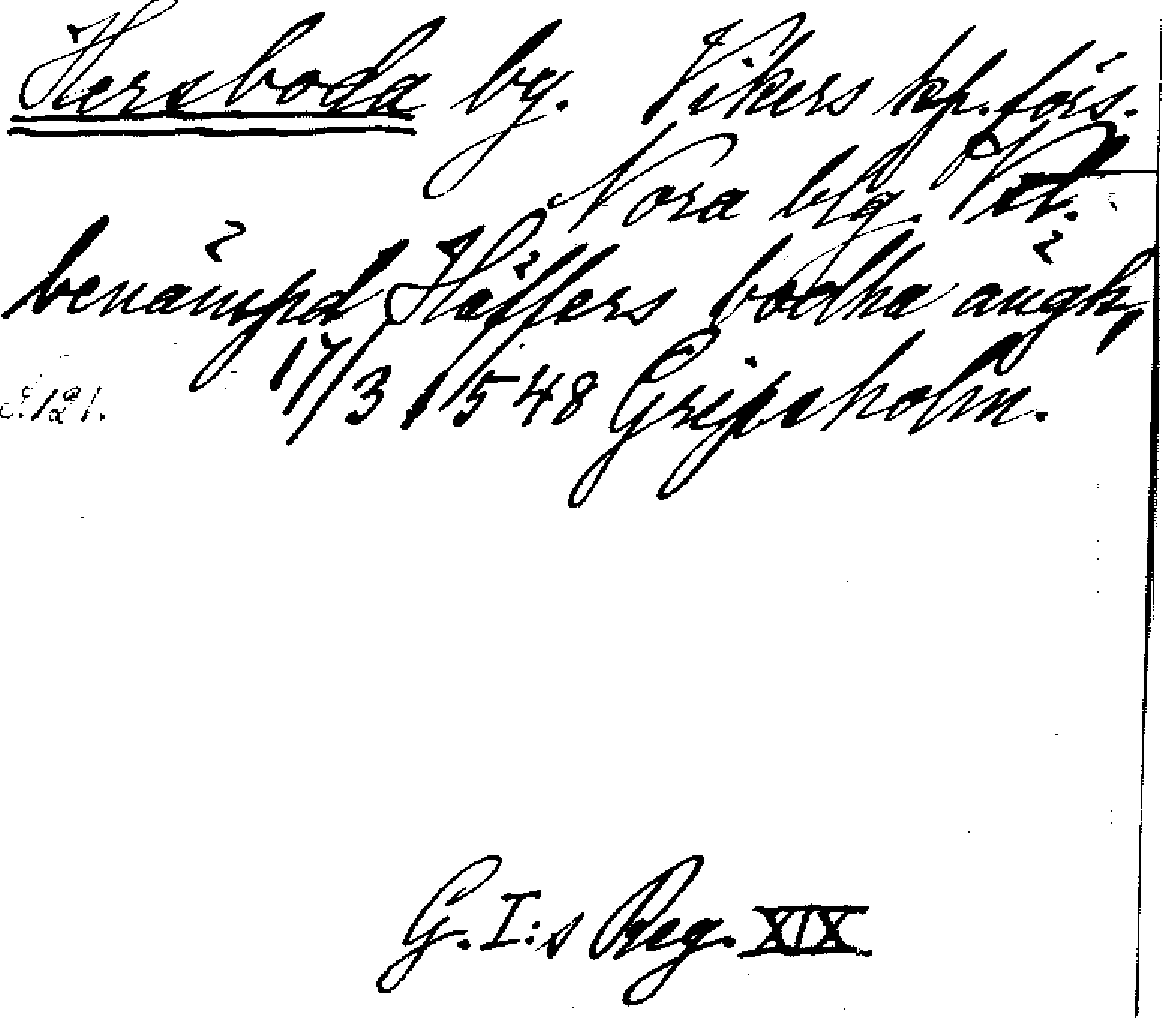 Hersboda by. Vikers kp. förs.
Nora blg. Vstl.
benämpd Häffers bodha ängh,
s. 121. 17/3 1548 Gripsholm.
G. I:s Reg. XIX